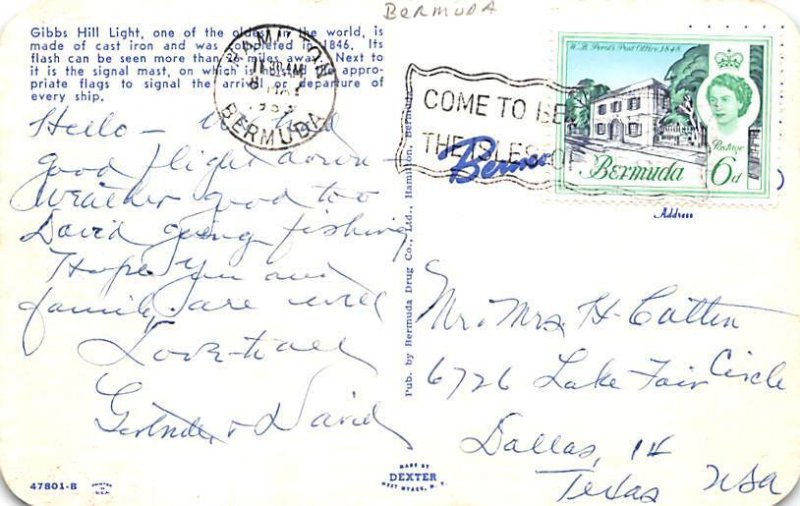 BERMUDA
Gibbs Hill Light, one of the oldest in the world, is
made of cast iron and was completed in 1846. Its
flash can be seen more than 26 miles away. Next to
it is the signal mast, on which is hoisted the appro-
priate flags to signal the arrival or departure of
every ship.
HAMILTON
BERMUDA
COME TO BE
THE ISLES OF
W. B. Perot's Post Office, 1848
Postage
Bermuda
6d
Bermu
Address
Hello - We had
good flight down -
Weather good too
David going fishing
Hope you and
family are well
Love to all
Gertrude & David
Pub. by Bermuda Drug Co., Ltd., Hamilton, Bermuda
Mr. Mrs. H. Catten
6726 Lake Fair Circle
Dallas, 14
Texas USA
47801-B
MADE BY
DEXTER
WEST NYACK, N. Y.